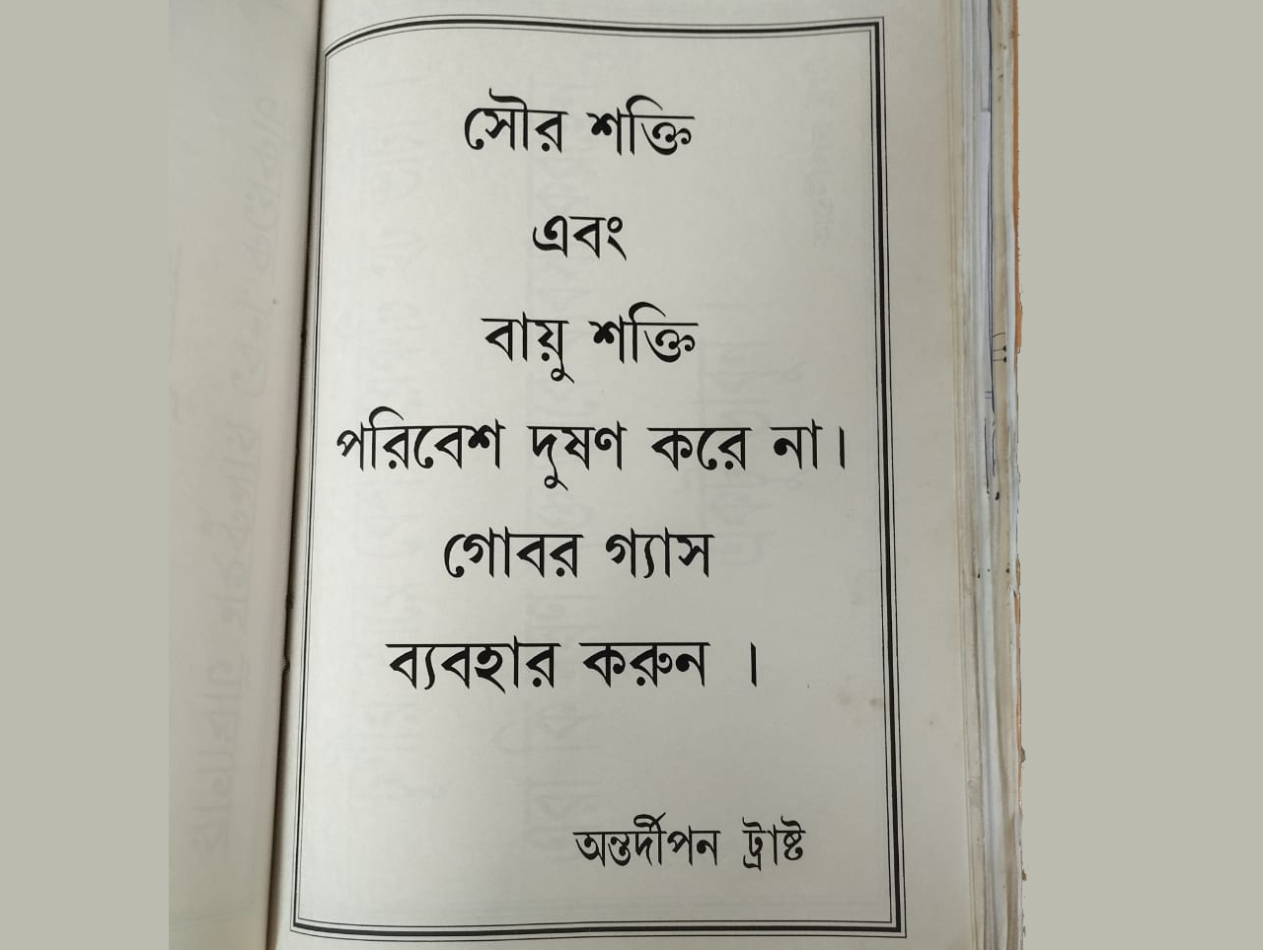 সৌর শক্তি
এবং
বায়ু শক্তি
পরিবেশ দুষণ করে না।
গোবর গ্যাস
ব্যবহার করুন ।
অন্তর্দীপন ট্রাষ্ট